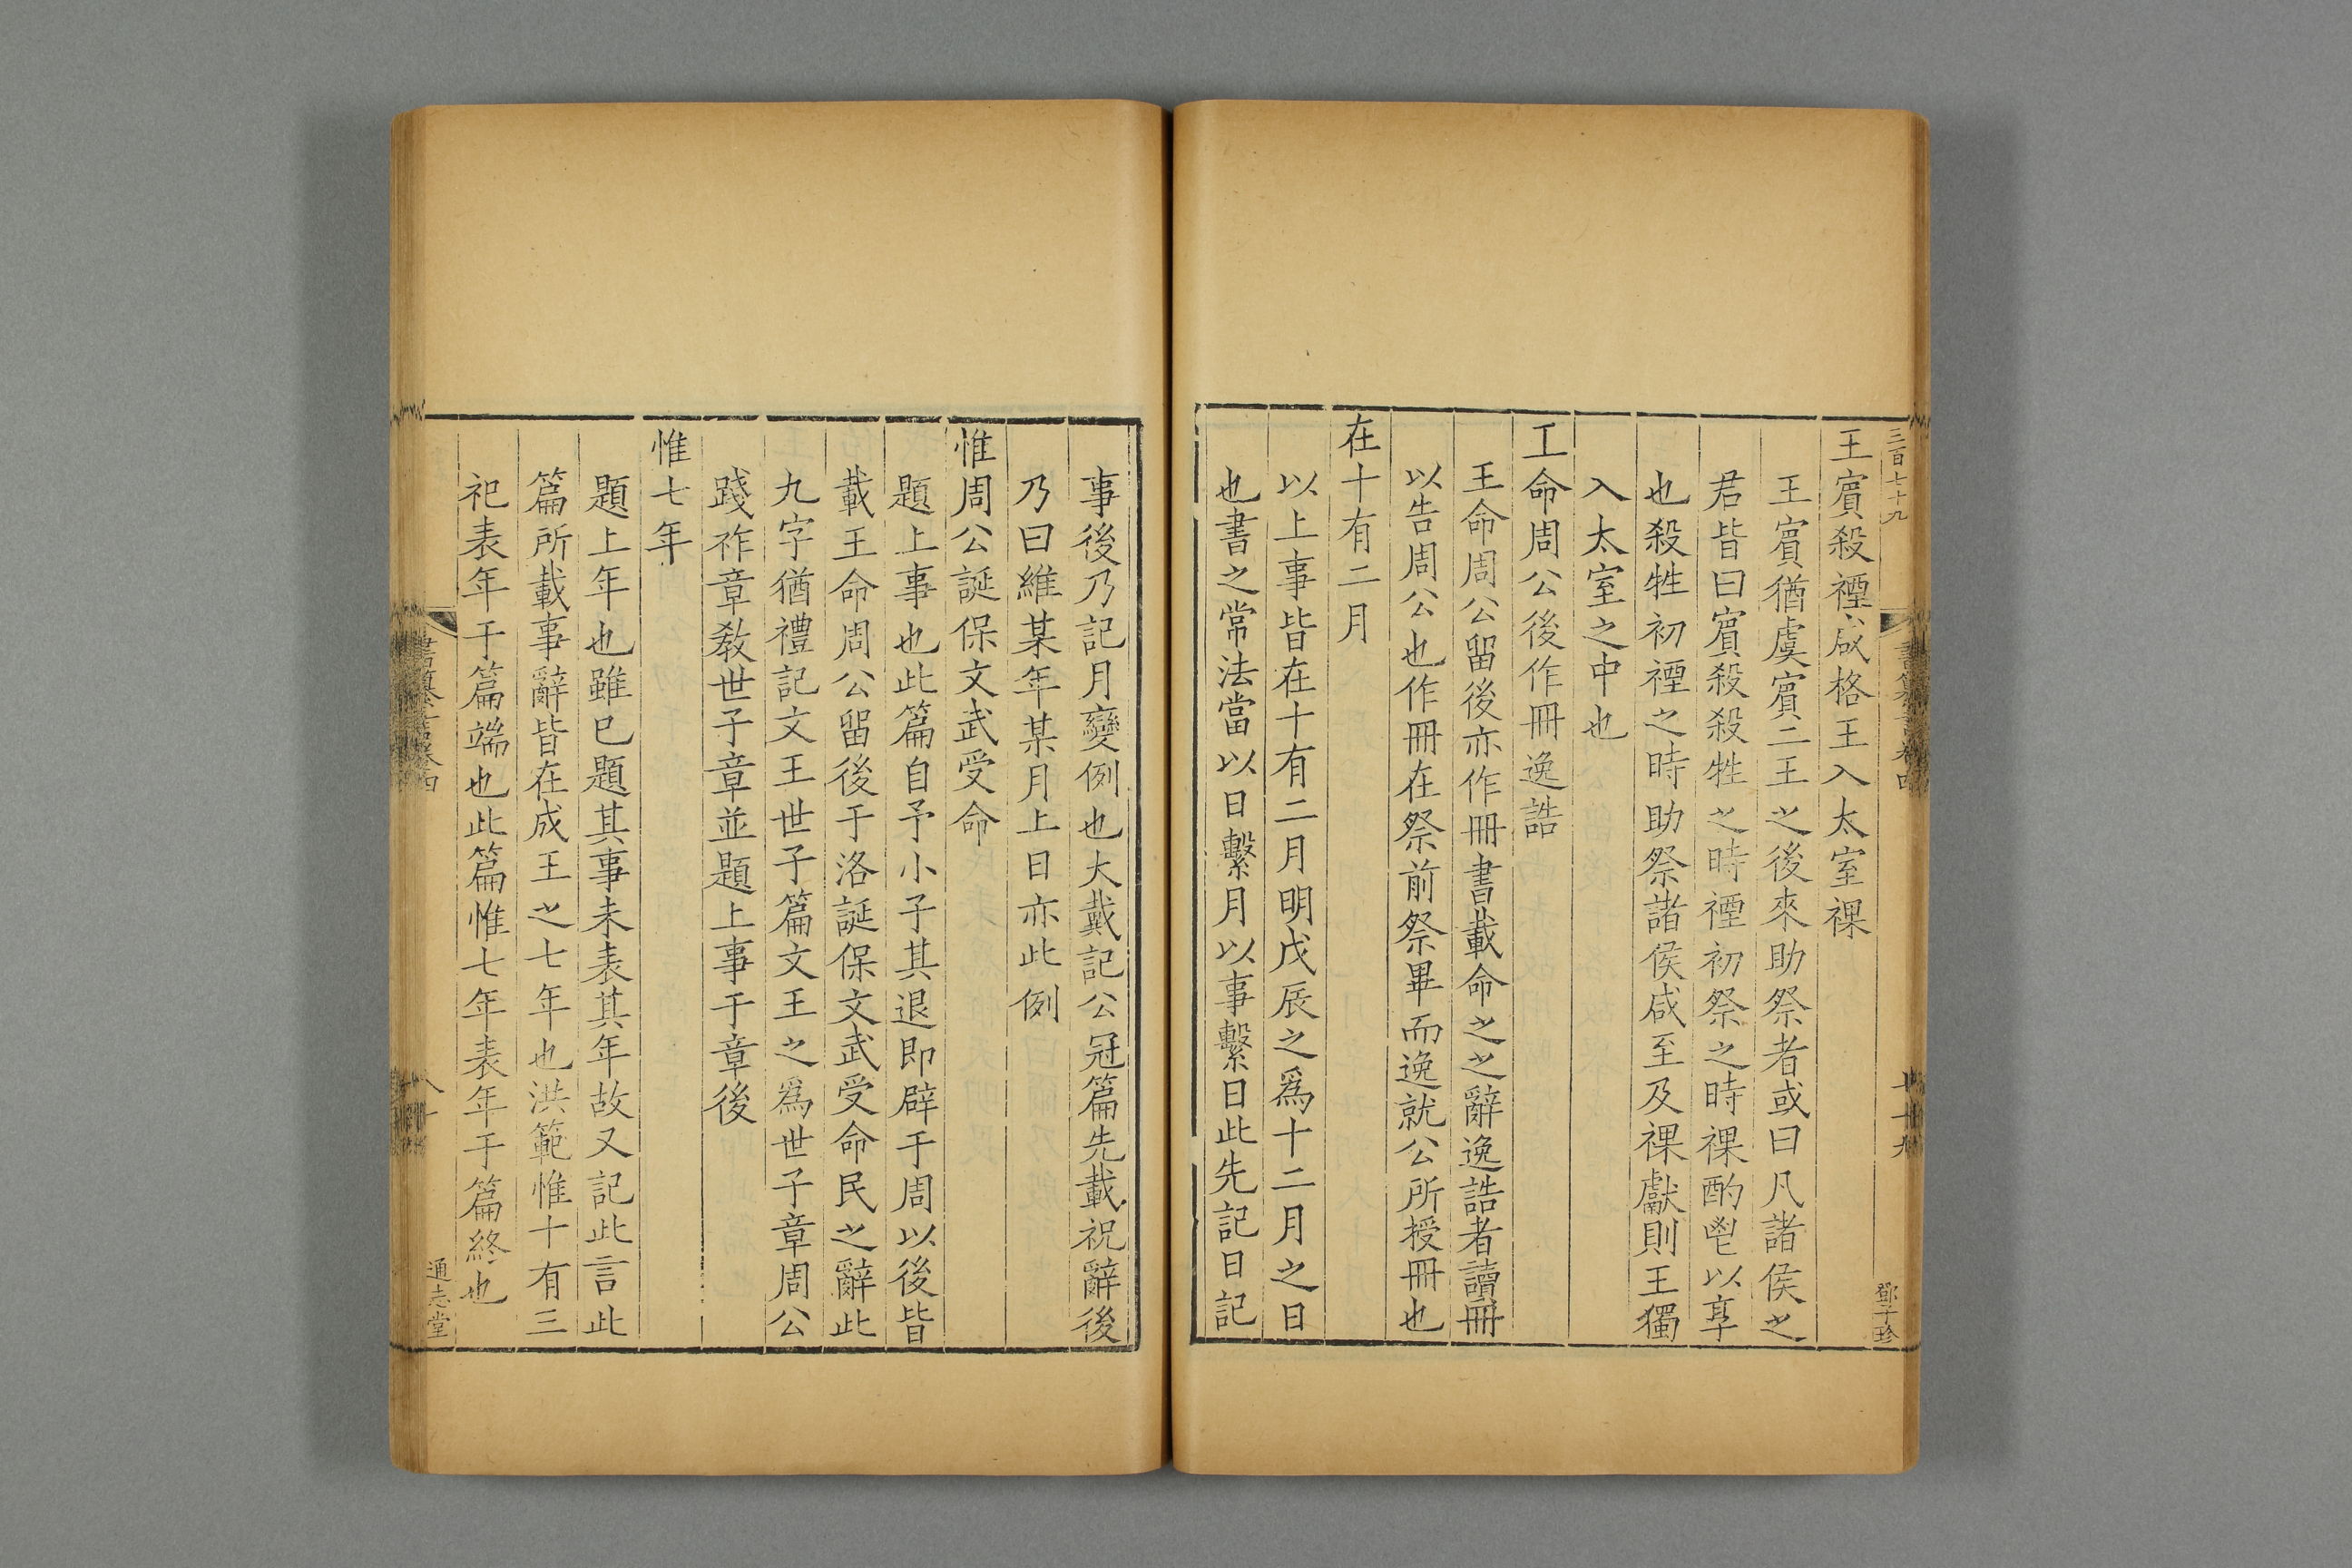 三百七十九
鄧子珍
王賔殺禋咸格王入太室祼
王賔猶虞賔二王之後來助祭者或曰凡諸侯之
君皆曰賔殺殺牲之時禋初祭之時祼酌鬯以享
也殺牲初禋之時助祭諸侯咸至及祼獻則王獨
入太室之中也
王命周公後作冊逸誥
王命周公留後亦作冊書載命之之辭逸誥者讀冊
以告周公也作冊在祭前祭畢而逸就公所授冊也
在十有二月
以上事皆在十有二月明戊辰之為十二月之日
也書之常法當以日繫月以事繫日此先記日記
事後乃記月變例也大戴記公冠篇先載祝辭後
乃曰維某年某月上日亦此例
惟周公誕保文武受命
題上事也此篇自予小子其退即辟于周以後皆
載王命周公留後于洛誕保文武受命民之辭此
九字猶禮記文王世子篇文王之為世子章周公
踐祚章教世子章並題上事于章後
惟七年
題上年也雖已題其事未表其年故又記此言此
篇所載事辭皆在成王之七年也洪範惟十有三
祀表年于篇端也此篇惟七年表年于篇終也
書纂言卷四
八十
通志堂